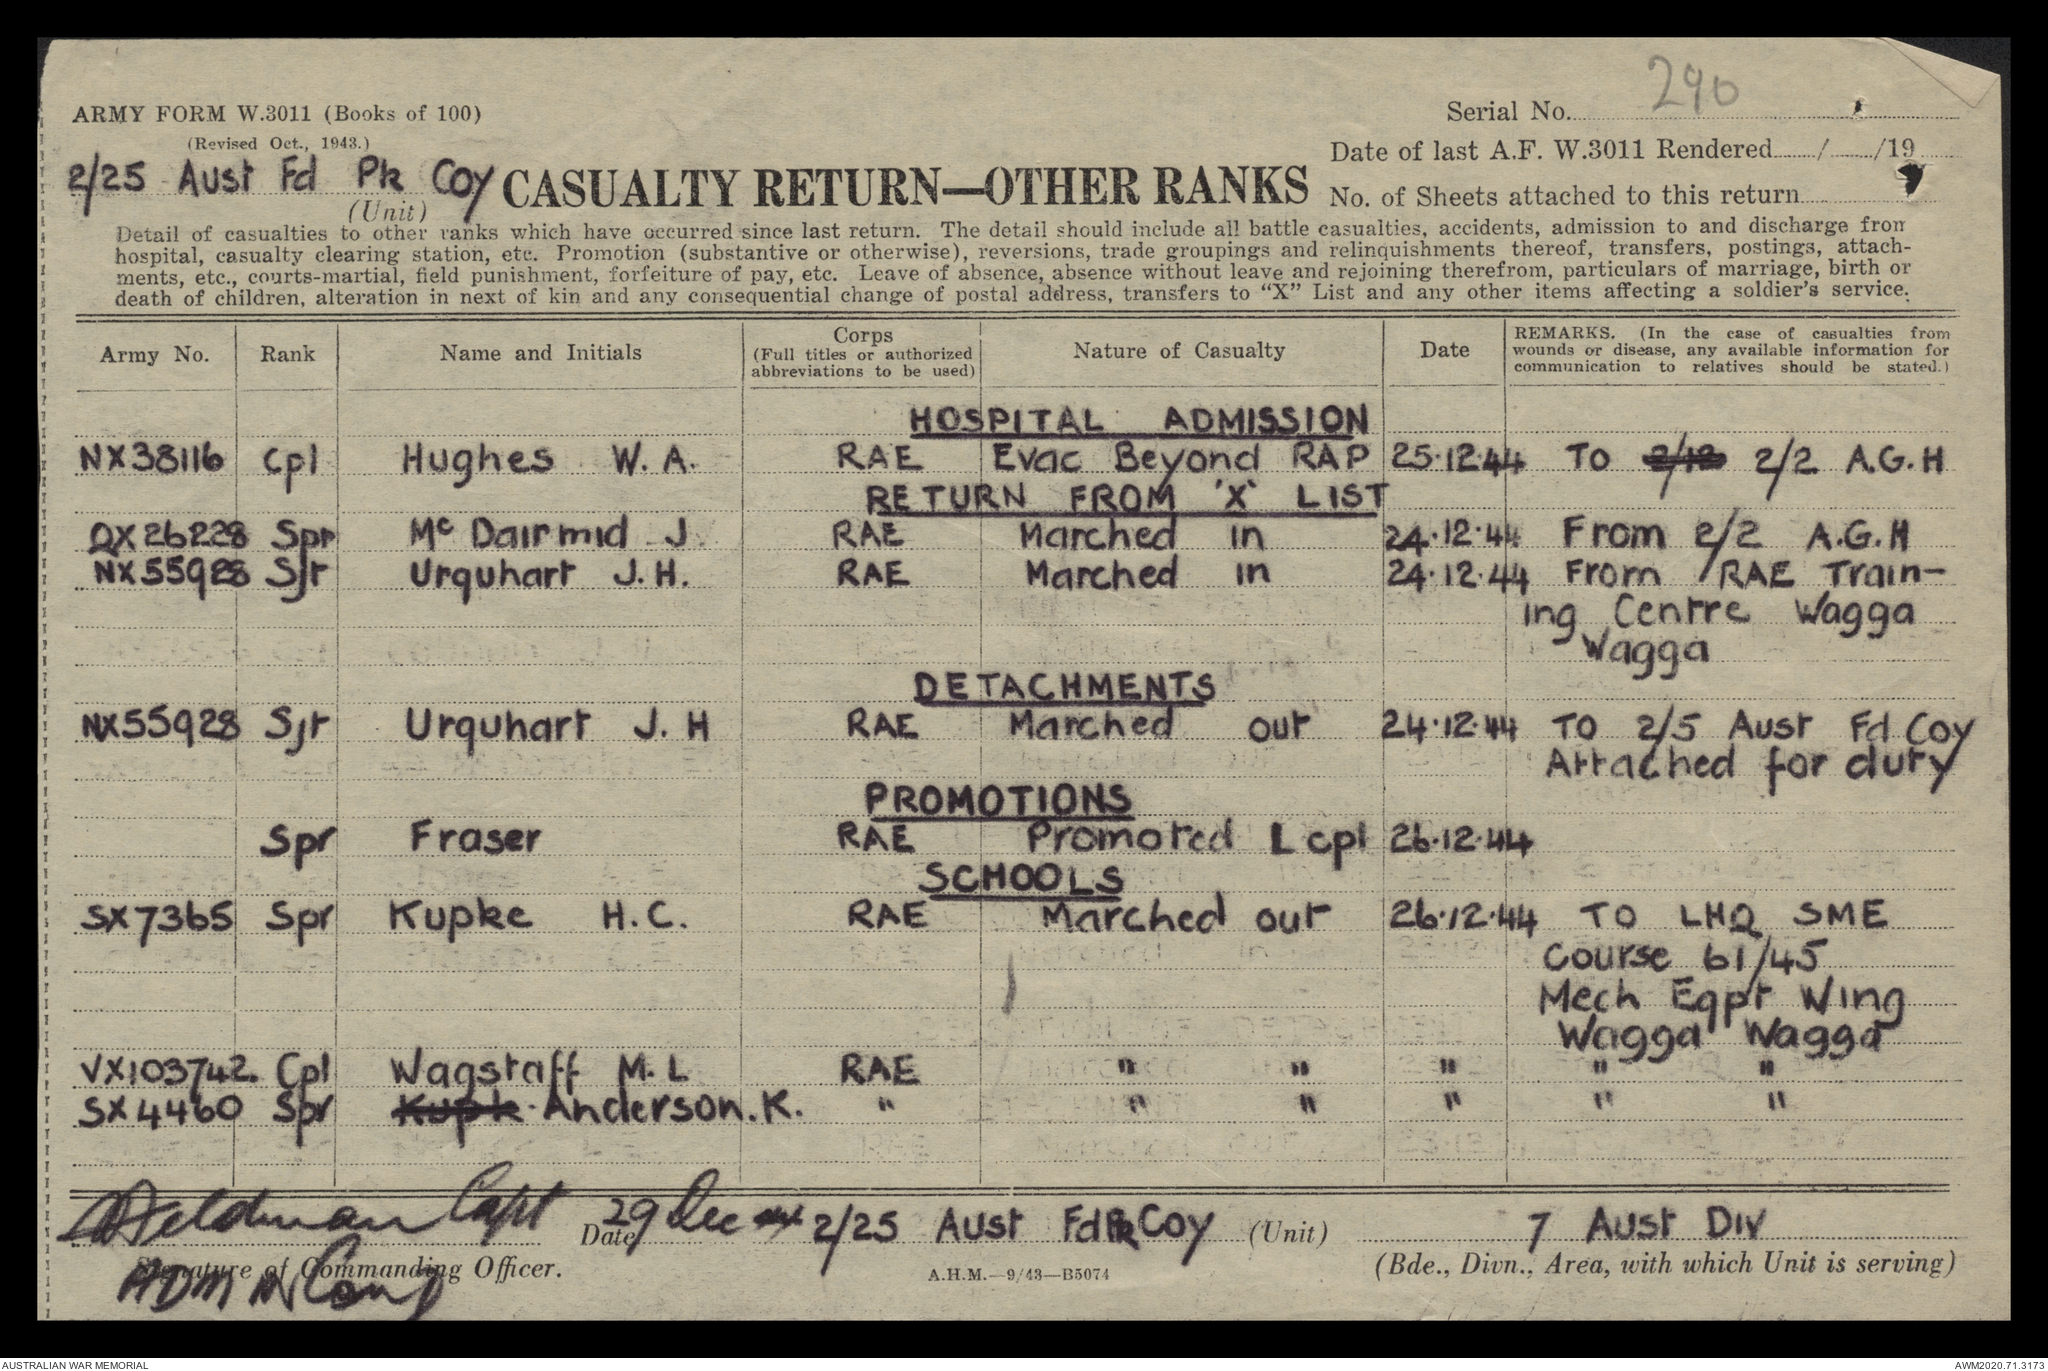 290
ARMY FORM W.3011 (Books of 100)
Serial No.
(Revised Oct., 1943.)
Date of last A.F. W.3011 Rendered / /19
2/25 Aust Fd Pk Coy CASUALTY RETURN—OTHER RANKS
No. of Sheets attached to this return
(Unit)
Detail of casualties to other ranks which have occurred since last return. The detail should include all battle casualties, accidents, admission to and discharge from
hospital, casualty clearing station, etc. Promotion (substantive or otherwise), reversions, trade groupings and relinquishments thereof, transfers, postings, attach-
ments, etc., courts-martial, field punishment, forfeiture of pay, etc. Leave of absence, absence without leave and rejoining therefrom, particulars of marriage, birth or
death of children, alteration in next of kin and any consequential change of postal address, transfers to "X" List and any other items affecting a soldier's service.
Army No. Rank Name and Initials Corps (Full titles or authorized abbreviations to be used) Nature of Casualty Date REMARKS. (In the case of casualties from wounds or disease, any available information for communication to relatives should be stated.)
HOSPITAL ADMISSION
NX38116 Cpl Hughes W. A. RAE Evac Beyond RAP 25.12.44 To 2/12 2/2 A.G.H
RETURN FROM 'X' LIST
QX26228 Spr Mc Dairmid J RAE Marched in 24.12.44 From 2/2 A.G.H
NX55928 Sjt Urquhart J.H. RAE Marched in 24.12.44 From RAE Train-
ing Centre Wagga
Wagga
DETACHMENTS
NX55928 Sjt Urquhart J. H RAE Marched out 24.12.44 To 2/5 Aust Fd Coy
Attached for duty
PROMOTIONS
Spr Fraser RAE Promoted L cpl 26.12.44
SCHOOLS
SX7365 Spr Kupke H.C. RAE Marched out 26.12.44 TO LHQ SME
Course 61/45
Mech Eqpt Wing
Wagga Wagga
VX103742 Cpl Wagstaff M.L RAE " " " " "
SX4460 Spr Kupk Anderson.K. " " " " " "
Feldman Capt Date 29 Dec 44 2/25 Aust Fd Pk Coy (Unit) 7 Aust Div
Signature of Commanding Officer. (Bde., Divn., Area, with which Unit is serving)
A.H.M.—9/43—B5074
AUSTRALIAN WAR MEMORIAL
AWM2020.71.3173